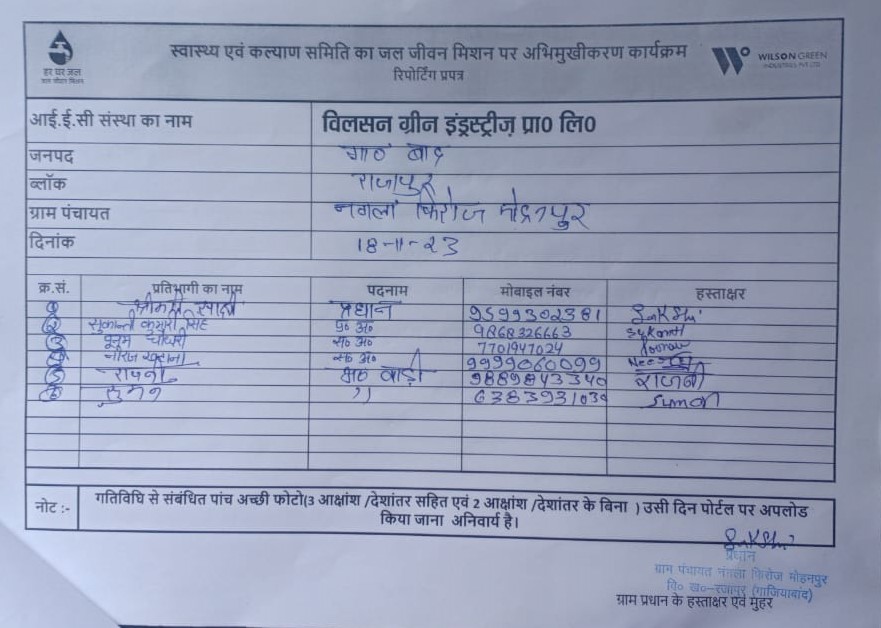 स्वास्थ्य एवं कल्याण समिति का जल जीवन मिशन पर अभिमुखीकरण कार्यक्रम
रिपोर्टिंग प्रपत्र
हर घर जल
जल जीवन मिशन
WILSON GREEN
INDUSTRIES PVT LTD
आई.ई.सी संस्था का नाम विलसन ग्रीन इंड्स्ट्रीज़ प्रा0 लि0
जनपद गा0 बाद
ब्लॉक राजापुर
ग्राम पंचायत नगला फिरोज मोहनपुर
दिनांक 18-11-23
क्र.सं. प्रतिभागी का नाम पदनाम मोबाइल नंबर हस्ताक्षर
1 श्रीमती प्रधान 9599302381
2 सुकान्ती कुमारी सिंह प्र० अ० 9868326663 Sukanti
3 पूनम चौधरी स० अ० 7701947024 Poonam
4 नीरज स० अ० 9999060099
5 आं० बाड़ी 9889843340 राजनी
6 सुमन ,, 6383931039 Suman
नोट :- गतिविधि से संबंधित पांच अच्छी फोटो(3 आक्षांश /देशांतर सहित एवं 2 आक्षांश /देशांतर के बिना ) उसी दिन पोर्टल पर अपलोड
किया जाना अनिवार्य है।
प्रधान
ग्राम पंचायत नंगला फिरोज मोहनपुर
वि० ख०-रजापुर (गाजियाबाद)
ग्राम प्रधान के हस्ताक्षर एवं मुहर